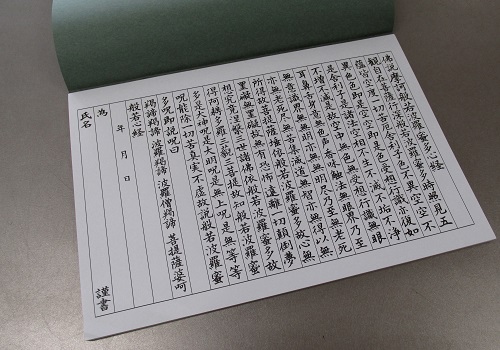 佛説摩訶般若波羅蜜多心經
觀自在菩薩行深般若波羅蜜多時照見五
蘊皆空度一切苦厄舍利子色不異空空不
異色色即是空空即是色受想行識亦復如
是舍利子是諸法空相不生不滅不垢不淨
不增不減是故空中無色無受想行識無眼
耳鼻舌身意無色聲香味觸法無眼界乃至
無意識界無無明亦無無明盡乃至無老死
亦無老死盡無苦集滅道無智亦無得以無
所得故菩提薩埵依般若波羅蜜多故心無
罣礙無罣礙故無有恐怖遠離一切顛倒夢
想究竟涅槃三世諸佛依般若波羅蜜多故
得阿耨多羅三藐三菩提故知般若波羅蜜
多是大神呪是大明呪是無上呪是無等等
呪能除一切苦真実不虚故説般若波羅蜜
多呪即説呪曰
羯諦羯諦 波羅羯諦 波羅僧羯諦 菩提薩婆訶
般若心経
年 月 日
為
氏名 謹書